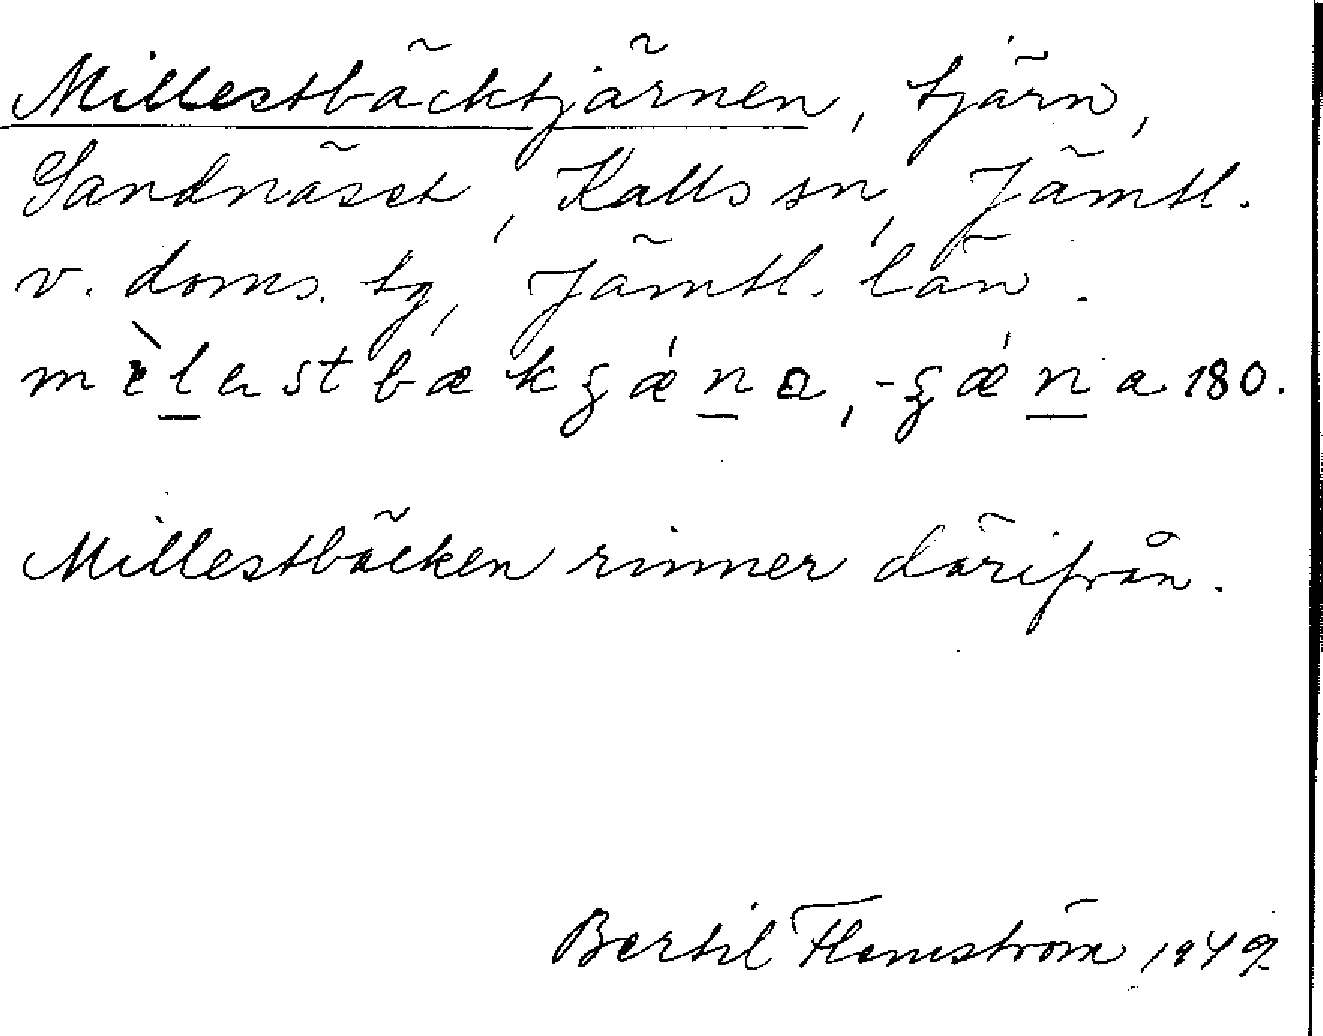 Millestbäcktjärnen, tjärn,
Sandnäset, Kalls sn, Jämtl.
v. doms. tg, Jämtl. län.
180.
Millestbäcken rinner därifrån.
Bertil Flemström 1949